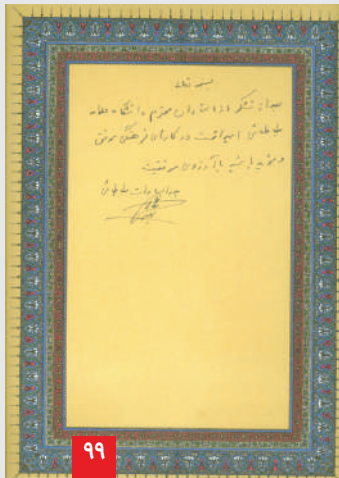 بسمه تعالی
بعد از تشکر از استادان محترم دانشگاه علامه
طباطبائی امید است در کارهای فرهنگی موفق
و مؤید باشید با آرزوی موفقیت
طباطبائی
۹۹